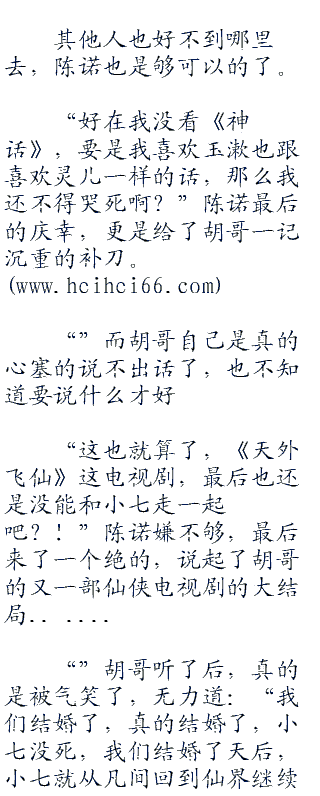 其他人也好不到哪里
去，陈诺也是够可以的了。
“好在我没看《神
话》，要是我喜欢玉漱也跟
喜欢灵儿一样的话，那么我
还不得哭死啊？”陈诺最后
的庆幸，更是给了胡哥一记
沉重的补刀。
(www.hcihci66.com)
“”而胡哥自己是真的
心塞的说不出话了，也不知
道要说什么才好
“这也就算了，《天外
飞仙》这电视剧，最后也还
是没能和小七走一起
吧？！”陈诺嫌不够，最后
来了一个绝的，说起了胡哥
的又一部仙侠电视剧的大结
局.. ....
“”胡哥听了后，真的
是被气笑了，无力道：“我
们结婚了，真的结婚了，小
七没死，我们结婚了天后，
小七就从凡间回到仙界继续